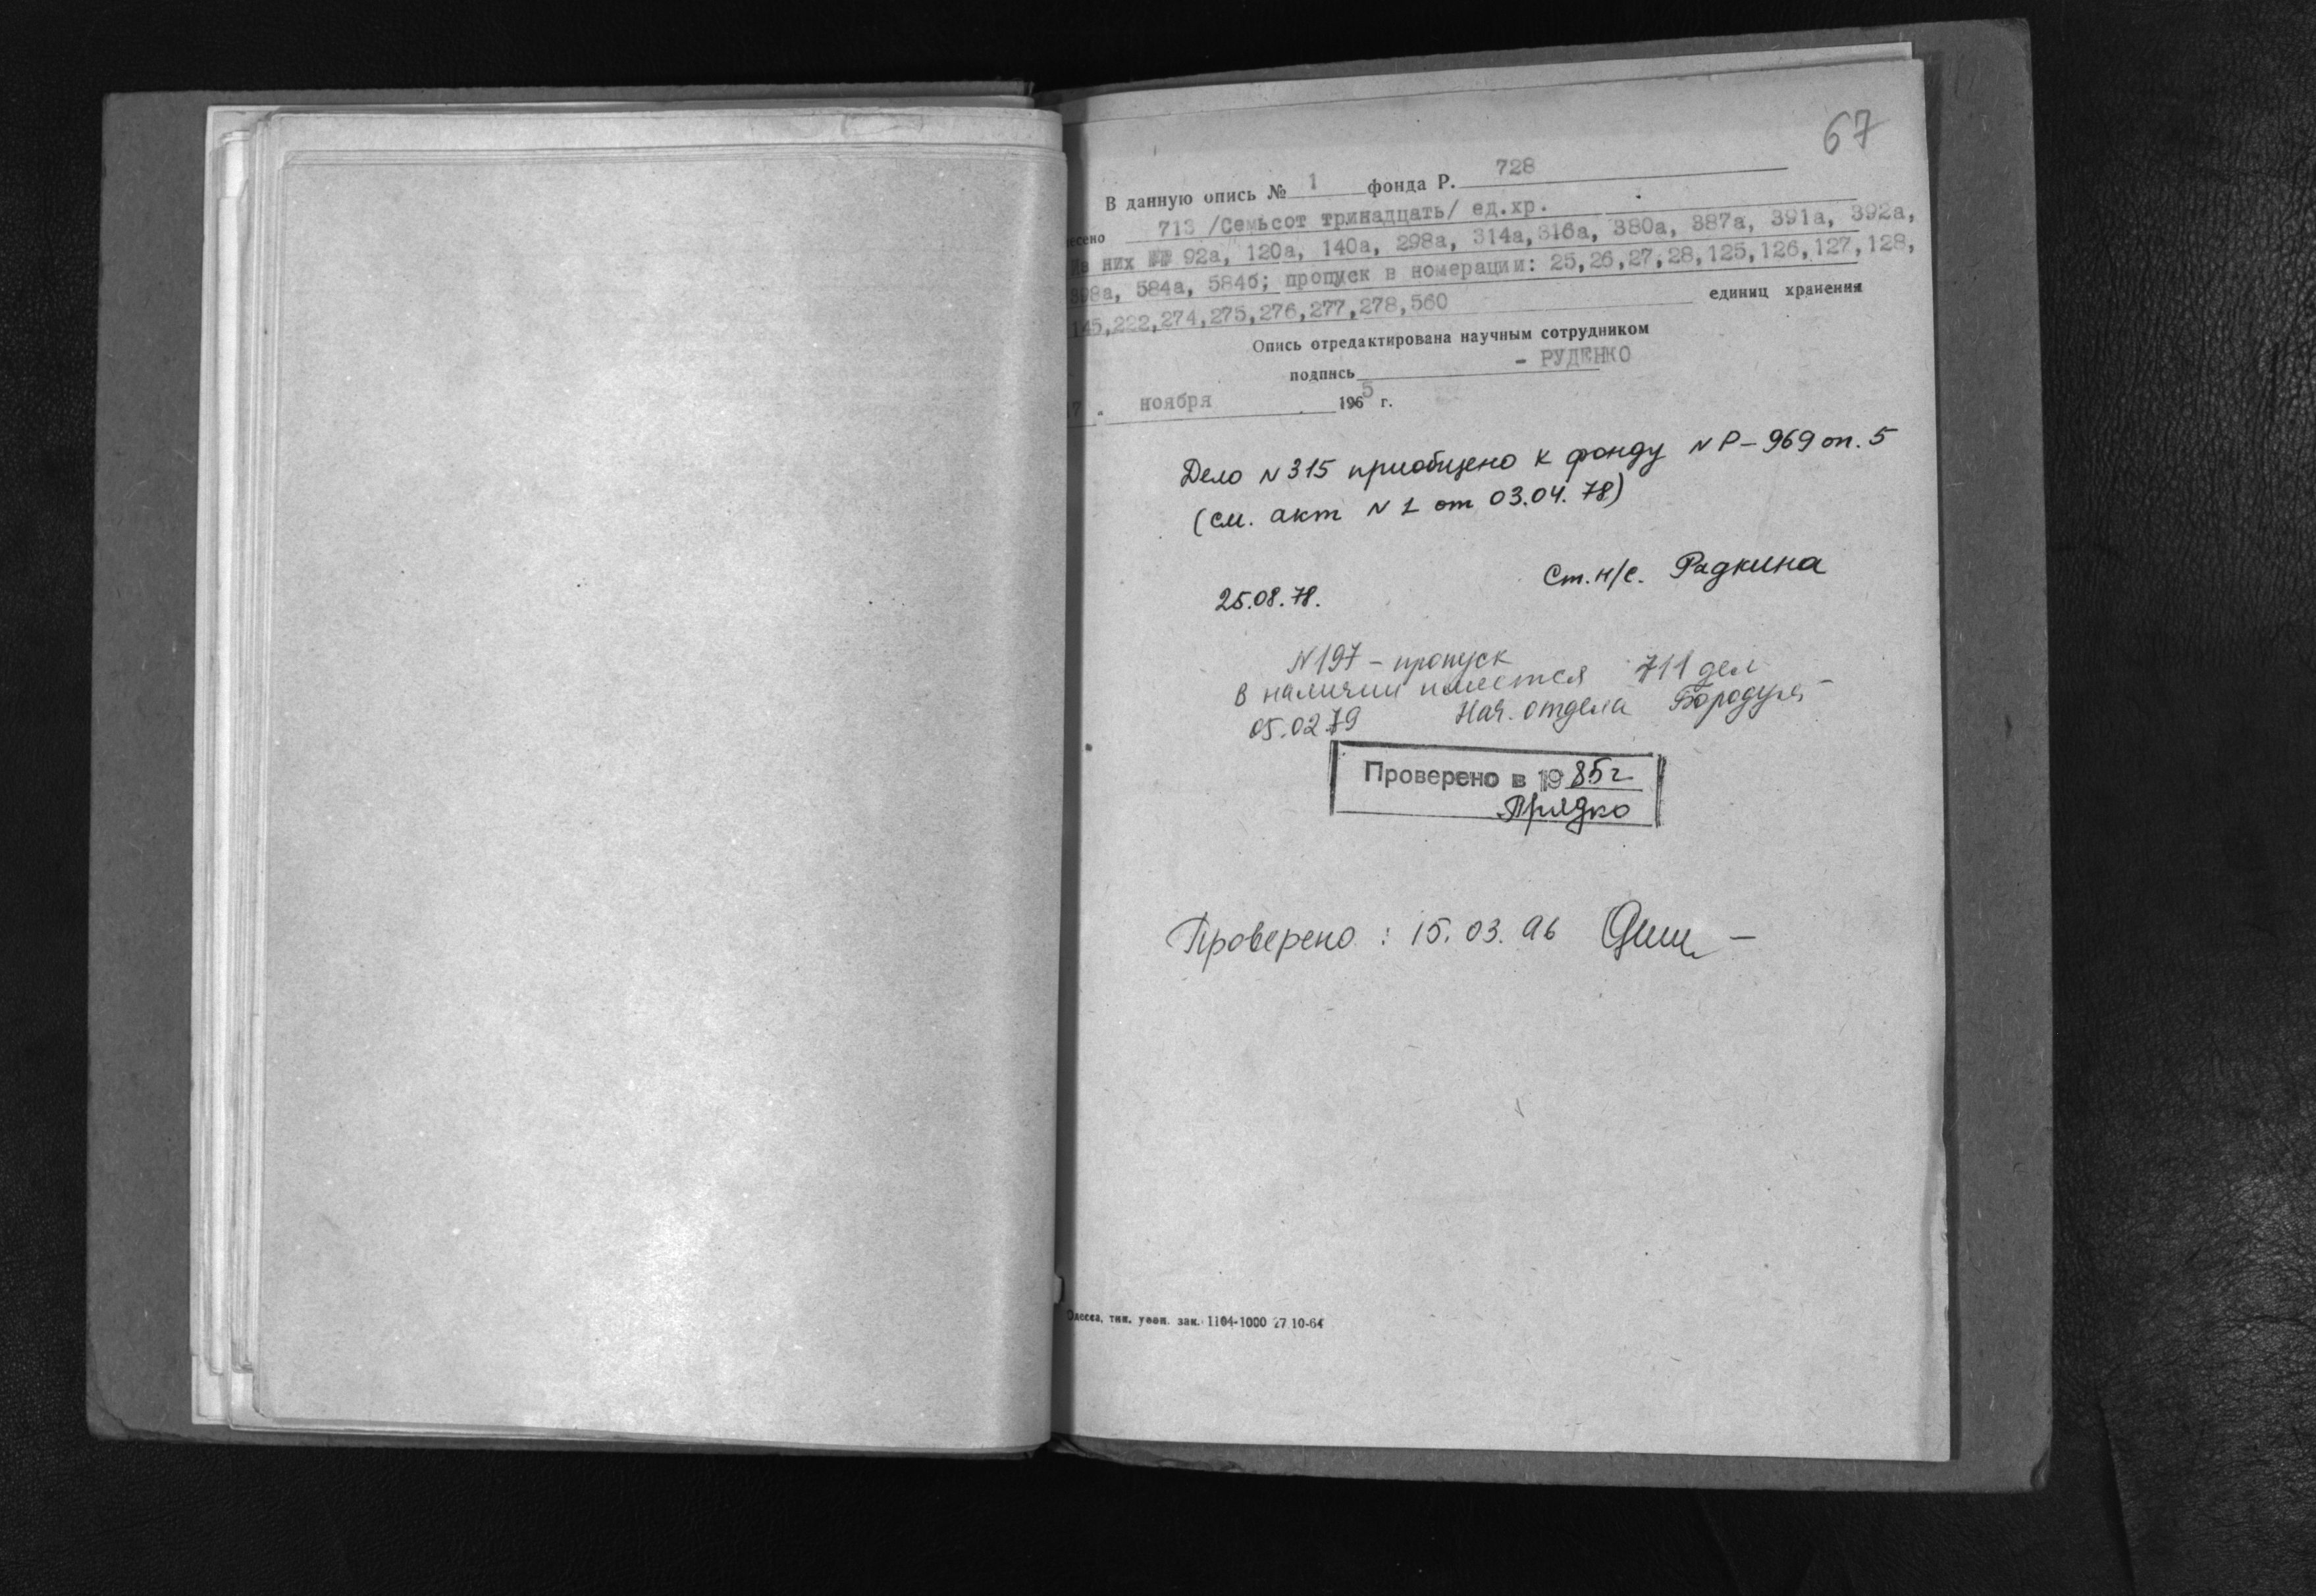 67
В данную опись № 1 фонда Р. 728
есено 713 /Семьсот тринадцать/ ед.хр.
Из них №№ 92а, 120а, 140а, 298а, 314а,316а, 380а, 387а, 391а, 392а,
398а, 584а, 584б; пропуск в номерации: 25,26,27,28,125,126,127,128,
145,222,274,275,276,277,278,560 единиц хранения
Опись отредактирована научным сотрудником
подпись - РУДЕНКО
17 " ноября 1965 г.
Дело N 315 приобщено к фонду N Р-969 оп. 5
(см. акт N 1 от 03.04.78)
Ст. н/с. Радкина
25.08.78.
N197 - пропуск
в наличии имеется 711 дел
05.02.79 Нач. отдела
Проверено в 1985г
Прядко
Проверено : 15.03.96
Одесса, тип. зак. 1104-1000 27.10-64